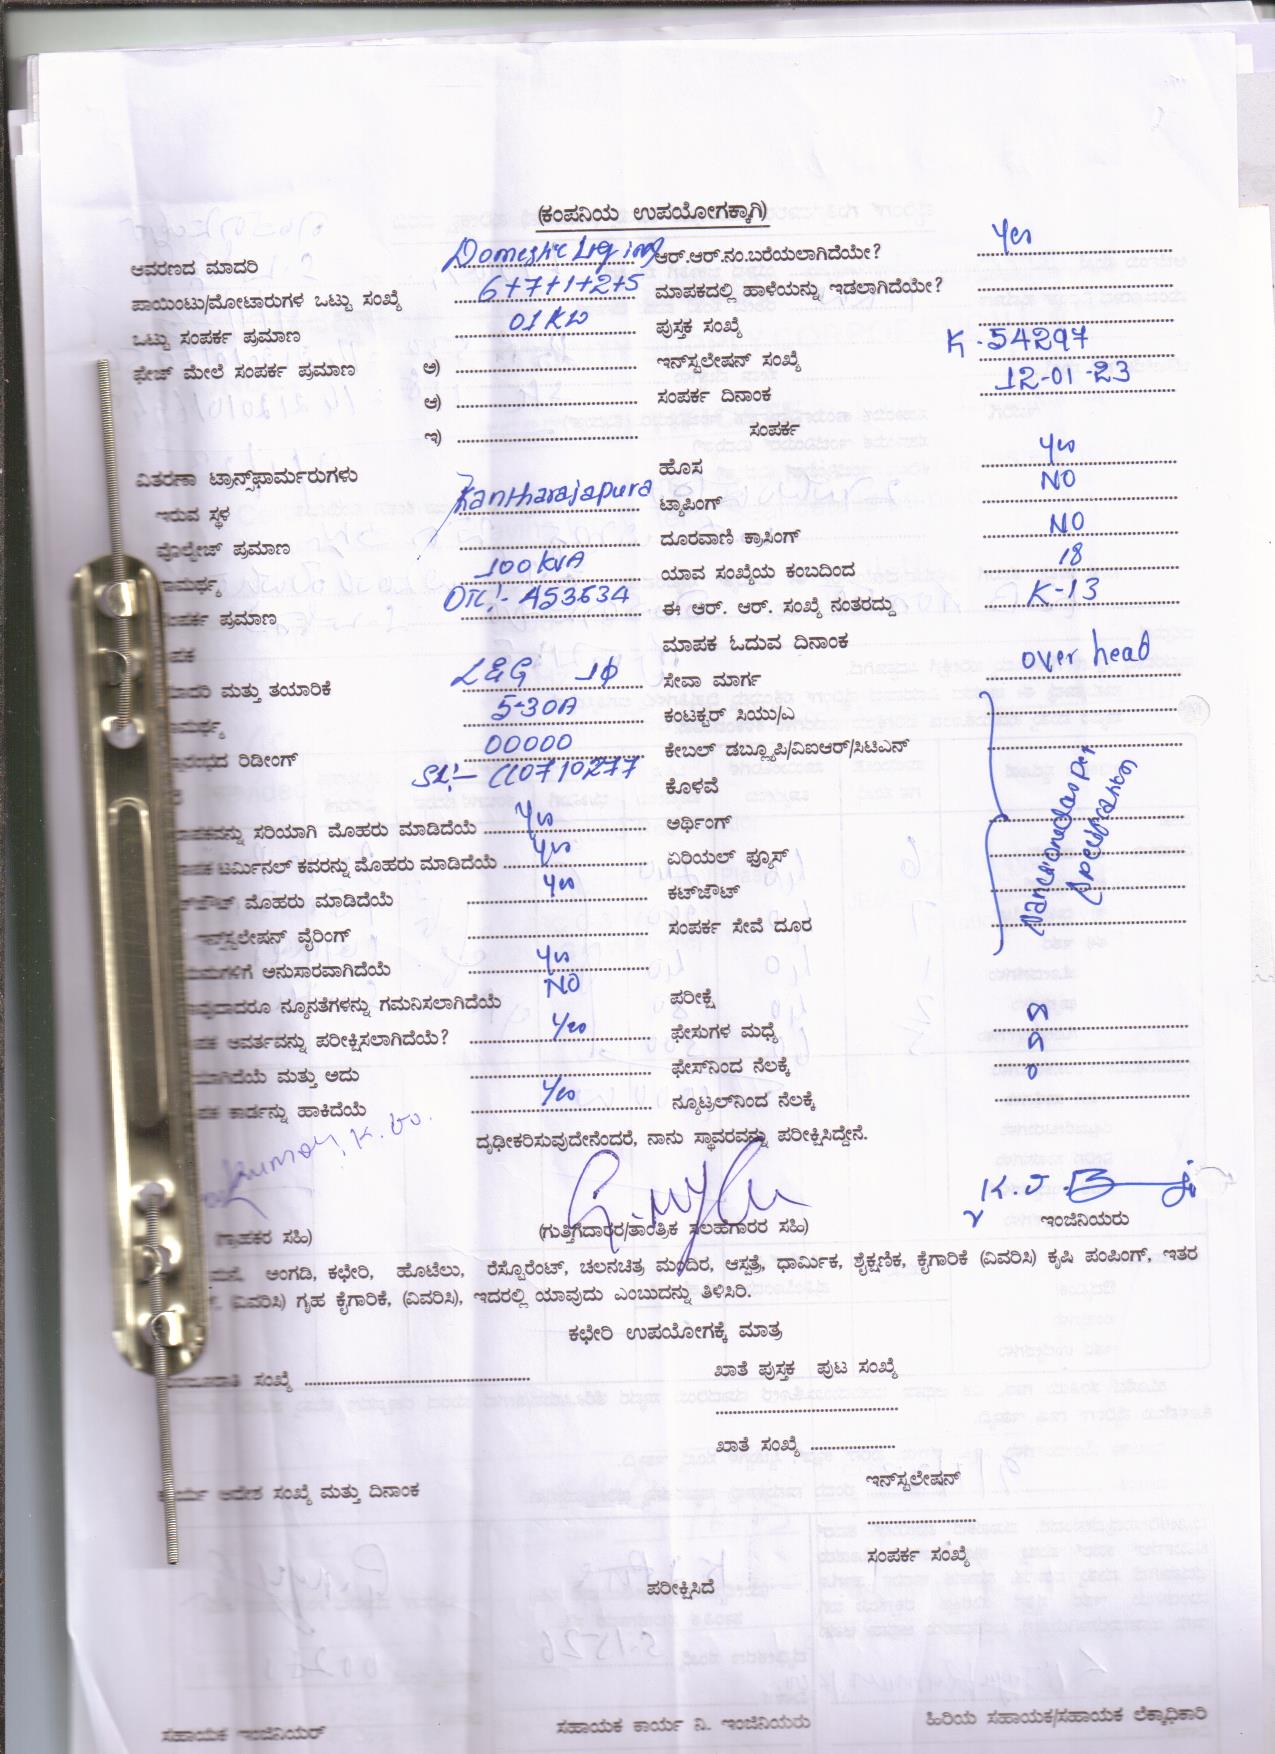 (ಕಂಪನಿಯ ಉಪಯೋಗಕ್ಕಾಗಿ)
ಆವರಣದ ಮಾದರಿ Domestic ಆರ್.ಆರ್.ನಂ.ಬರೆಯಲಾಗಿದೆಯೇ? Yes
ಪಾಯಿಂಟು/ಮೋಟಾರುಗಳ ಒಟ್ಟು ಸಂಖ್ಯೆ 6+7+1+2+5 ಮಾಪಕದಲ್ಲಿ ಹಾಳೆಯನ್ನು ಇಡಲಾಗಿದೆಯೇ?
ಒಟ್ಟು ಸಂಪರ್ಕ ಪ್ರಮಾಣ 01 KW ಪುಸ್ತಕ ಸಂಖ್ಯೆ
ಫೇಜ್ ಮೇಲೆ ಸಂಪರ್ಕ ಪ್ರಮಾಣ ಅ) ಇನ್‌ಸ್ಟಲೇಷನ್ ಸಂಖ್ಯೆ K-54297
ಆ) ಸಂಪರ್ಕ ದಿನಾಂಕ 12-01-23
ಇ) ಸಂಪರ್ಕ
ವಿತರಣಾ ಟ್ರಾನ್ಸ್‌ಫಾರ್ಮರುಗಳು ಹೊಸ Yes
ಇರುವ ಸ್ಥಳ Kantharajapura ಟ್ಯಾಪಿಂಗ್ NO
ವೊಲ್ಟೇಜ್ ಪ್ರಮಾಣ ದೂರವಾಣಿ ಕ್ರಾಸಿಂಗ್ NO
ಾಮರ್ಥ್ಯ 100 KVA ಯಾವ ಸಂಖ್ಯೆಯ ಕಂಬದಿಂದ 18
ಂಪರ್ಕ ಪ್ರಮಾಣ DTC:- 453634 ಈ ಆರ್. ಆರ್. ಸಂಖ್ಯೆ ನಂತರದ್ದು K-13
ಪಕ ಮಾಪಕ ಓದುವ ದಿನಾಂಕ
ಾದರಿ ಮತ್ತು ತಯಾರಿಕೆ L&G 1ϕ ಸೇವಾ ಮಾರ್ಗ over head
ಾಮರ್ಥ್ಯ 5-30A ಕಂಟಕ್ಟರ್ ಸಿಯು/ಎ
ರಂಭದ ರಿಡೀಂಗ್ 00000 ಕೇಬಲ್ ಡಬ್ಲ್ಯೂಪಿ/ವಿಐಆರ್/ಸಿಟಿಎನ್
SL:- CC0710277 ಕೊಳವೆ
ಪಕವನ್ನು ಸರಿಯಾಗಿ ಮೊಹರು ಮಾಡಿದೆಯೆ Yes ಅರ್ಥಿಂಗ್
ಪಕ ಟರ್ಮಿನಲ್ ಕವರನ್ನು ಮೊಹರು ಮಾಡಿದೆಯೆ Yes ಏರಿಯಲ್ ಫ್ಯೂಸ್
ಔಟ್ ಮೊಹರು ಮಾಡಿದೆಯೆ Yes ಕಟ್‌ಔಟ್
ಇನ್‌ಸ್ಟಲೇಷನ್ ವೈರಿಂಗ್ ಸಂಪರ್ಕ ಸೇವೆ ದೂರ
ಮಗಳಿಗೆ ಅನುಸಾರವಾಗಿದೆಯೆ Yes
ವುದಾದರೂ ನ್ಯೂನತೆಗಳನ್ನು ಗಮನಿಸಲಾಗಿದೆಯೆ NO ಪರೀಕ್ಷೆ
ಪಕ ಆವರ್ತವನ್ನು ಪರೀಕ್ಷಿಸಲಾಗಿದೆಯೆ? Yes ಫೇಸುಗಳ ಮಧ್ಯೆ
ಾಗಿದೆಯೆ ಮತ್ತು ಅದು ಫೇಸ್‌ನಿಂದ ನೆಲಕ್ಕೆ
ಪಕ ಕಾರ್ಡನ್ನು ಹಾಕಿದೆಯೆ Yes ನ್ಯೂಟ್ರಲ್‌ನಿಂದ ನೆಲಕ್ಕೆ
ದೃಢೀಕರಿಸುವುದೇನೆಂದರೆ, ನಾನು ಸ್ಥಾವರವನ್ನು ಪರೀಕ್ಷಿಸಿದ್ದೇನೆ.
(ಗ್ರಾಹಕರ ಸಹಿ) (ಗುತ್ತಿಗೆದಾರರ/ತಾಂತ್ರಿಕ ಸಲಹೆಗಾರರ ಸಹಿ) ಇಂಜಿನಿಯರು
ಮನೆ, ಅಂಗಡಿ, ಕಛೇರಿ, ಹೊಟೆಲು, ರೆಸ್ಟೊರೆಂಟ್, ಚಲನಚಿತ್ರ ಮಂದಿರ, ಆಸ್ಪತ್ರೆ, ಧಾರ್ಮಿಕ, ಶೈಕ್ಷಣಿಕ, ಕೈಗಾರಿಕೆ (ವಿವರಿಸಿ) ಕೃಷಿ ಪಂಪಿಂಗ್, ಇತರ
ವಿವರಿಸಿ) ಗೃಹ ಕೈಗಾರಿಕೆ, (ವಿವರಿಸಿ), ಇದರಲ್ಲಿ ಯಾವುದು ಎಂಬುದನ್ನು ತಿಳಿಸಿರಿ.
ಕಛೇರಿ ಉಪಯೋಗಕ್ಕೆ ಮಾತ್ರ
ಸಂಖ್ಯೆ ಖಾತೆ ಪುಸ್ತಕ ಪುಟ ಸಂಖ್ಯೆ
ಖಾತೆ ಸಂಖ್ಯೆ
ಕಾರ್ಯ ಆದೇಶ ಸಂಖ್ಯೆ ಮತ್ತು ದಿನಾಂಕ ಇನ್‌ಸ್ಟಲೇಷನ್
ಸಂಪರ್ಕ ಸಂಖ್ಯೆ
ಪರೀಕ್ಷಿಸಿದೆ
ಸಹಾಯಕ ಇಂಜಿನಿಯರ್ ಸಹಾಯಕ ಕಾರ್ಯ ನಿ. ಇಂಜಿನಿಯರು ಹಿರಿಯ ಸಹಾಯಕ/ಸಹಾಯಕ ಲೆಕ್ಕಾಧಿಕಾರಿ